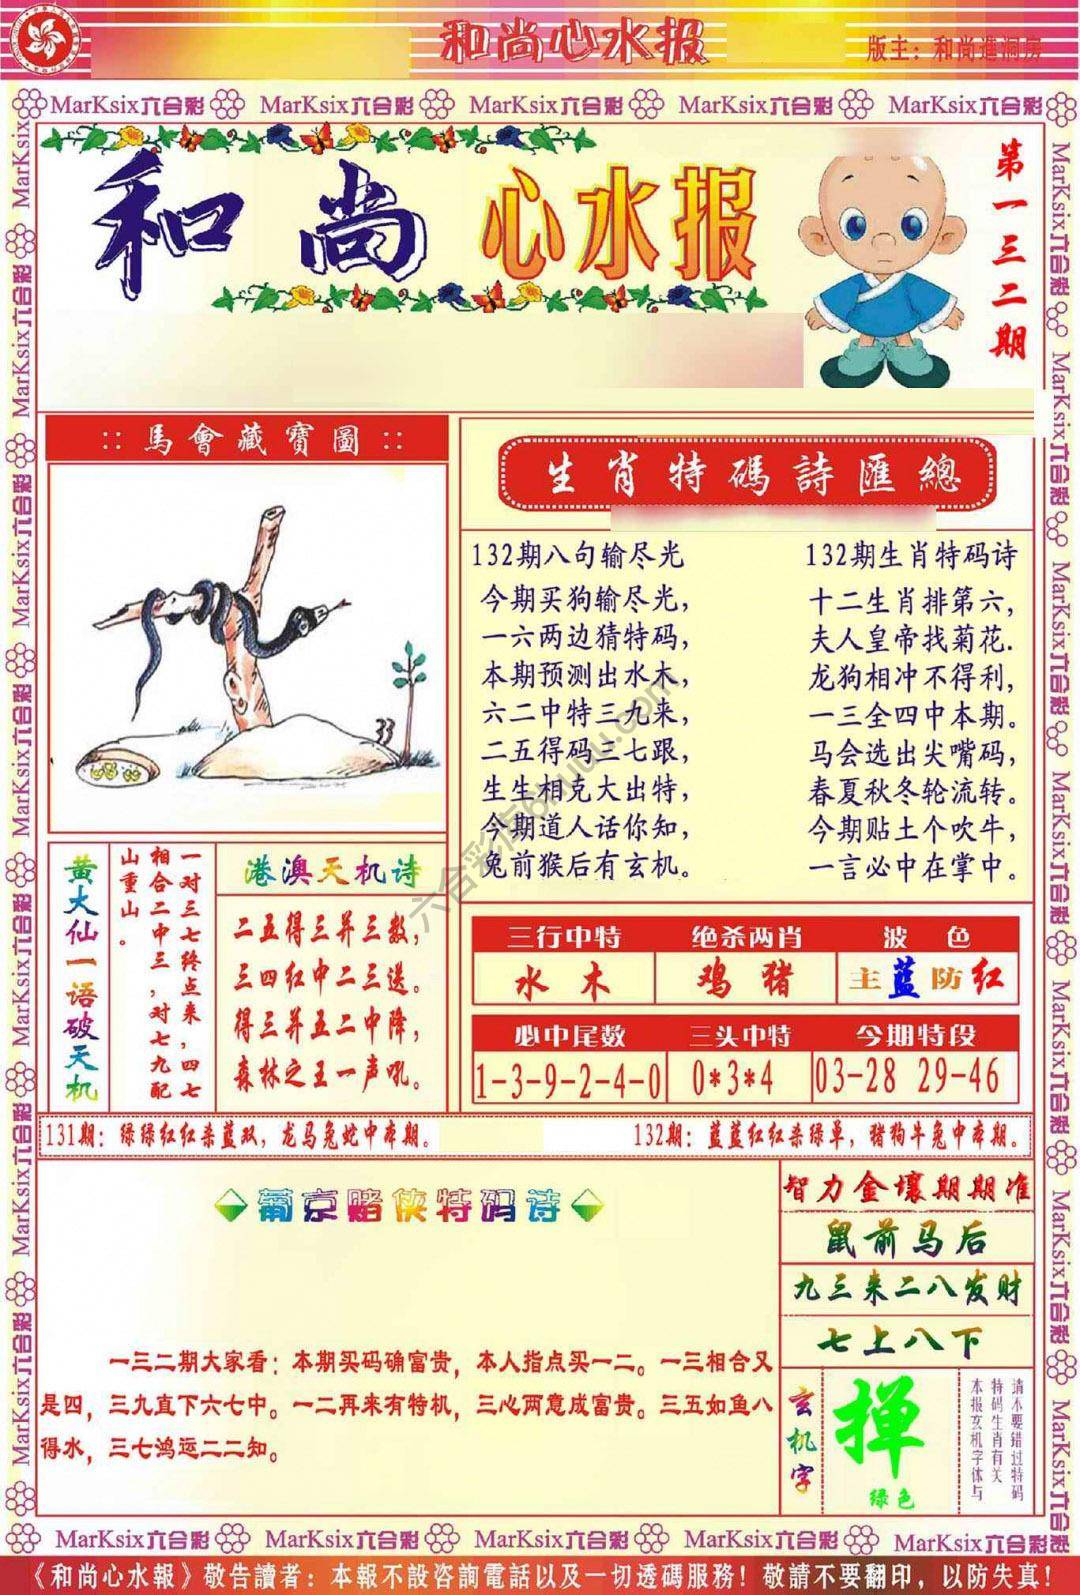 和尚心水报
版主：和尚進洞房
MarKsix六合彩 MarKsix六合彩 MarKsix六合彩 MarKsix六合彩 MarKsix六合彩
和尚心水报
第一三二期
:: 馬會藏寶圖 ::
33
生肖特碼詩匯總
132期八句输尽光
今期买狗输尽光，
一六两边猜特码，
本期预测出水木，
六二中特三九来，
二五得码三七跟，
生生相克大出特，
今期道人话你知，
兔前猴后有玄机。
132期生肖特码诗
十二生肖排第六，
夫人皇帝找菊花.
龙狗相冲不得利，
一三全四中本期。
马会选出尖嘴码，
春夏秋冬轮流转。
今期贴土个吹牛，
一言必中在掌中。
黄大仙一语破天机
一对三七终点来，四七
相合二中三，对七九配
山重山。
港澳天机诗
二五得三并三数，
三四红中二三送。
得三并五二中降，
森林之王一声吼。
三行中特 绝杀两肖 波色
水木 鸡猪 主蓝防红
必中尾数 三头中特 今期特段
1-3-9-2-4-0 0*3*4 03-28 29-46
131期：绿绿红红杀蓝双，龙马兔蛇中本期。
132期：蓝蓝红红杀绿单，猪狗牛兔中本期。
葡京赌侠特码诗
一三二期大家看：本期买码确富贵，本人指点买一二。一三相合又
是四，三九直下六七中。一二再来有特机，三心两意成富贵。三五如鱼八
得水，三七鸿运二二知。
智力金壤期期准
鼠前马后
九三来二八发财
七上八下
玄机字
掸
绿色
请不要错过特码
特码生肖有关
本报玄机字体与
六合彩库6huuu.com
MarKsix六合彩 MarKsix六合彩 MarKsix六合彩 MarKsix六合彩 MarKsix六合彩
《和尚心水報》敬告讀者：本報不設咨詢電話以及一切透碼服務！敬請不要翻印，以防失真！